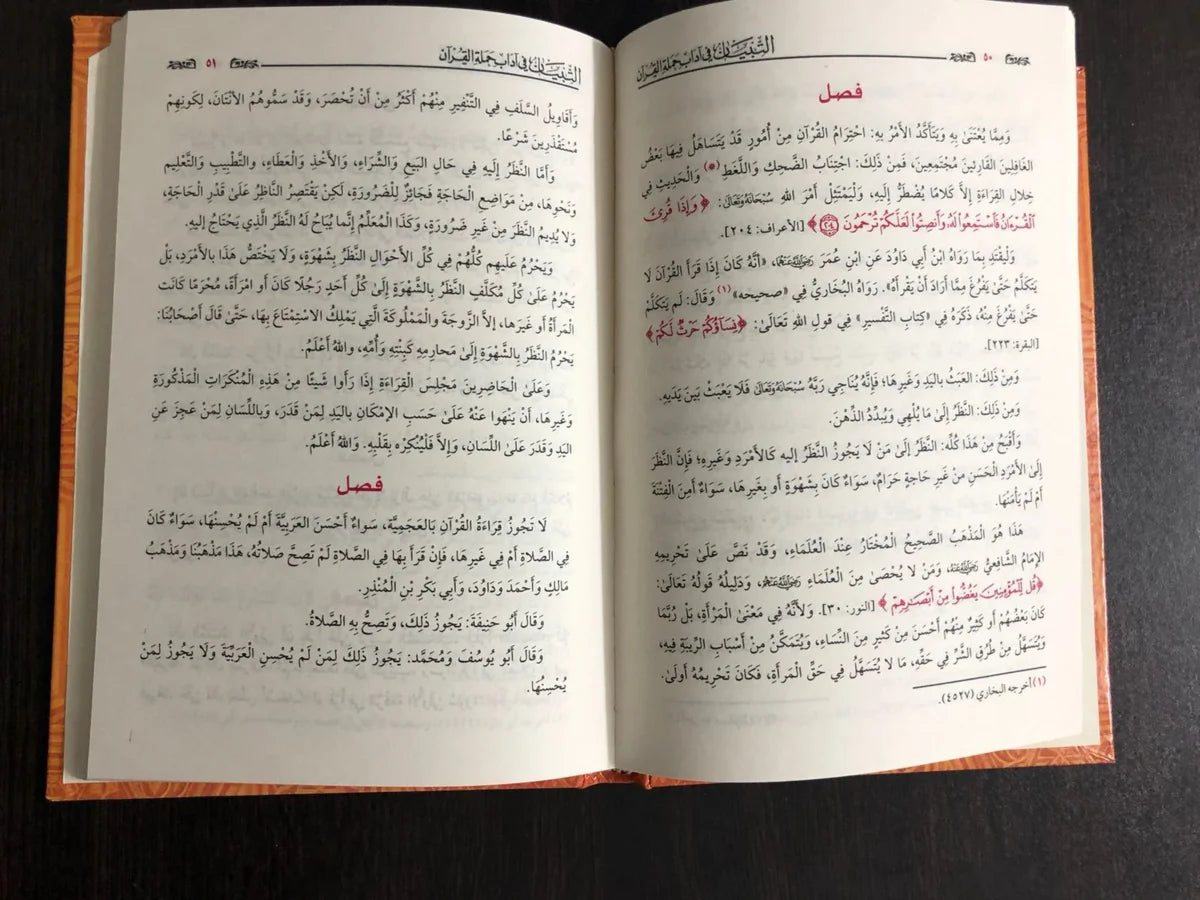 التبيان في آداب حملة القرآن ٥٠
فصل
وَمِمَّا يُعْتَنَىٰ بِهِ وَيَتَأَكَّدُ الأَمْرُ بِهِ: احْتِرَامُ القُرْآنِ مِنْ أُمُورٍ قَدْ يَتَسَاهَلُ فِيهَا بَعْضُ
الغَافِلِينَ القَارِئِينَ مُجْتَمِعِينَ، فَمِنْ ذَلِكَ: اجْتِنَابُ الضَّحِكِ وَاللَّغَطِ(*) وَالْحَدِيثِ فِي
خِلَالِ القِرَاءَةِ إِلَّا كَلَامًا يُضْطَرُّ إِلَيْهِ، وَلْيَمْتَثِلْ أَمْرَ اللهِ سُبْحَانَهُ وَتَعَالَىٰ: ﴿وَإِذَا قُرِئَ
الْقُرْءَانُ فَاسْتَمِعُوا لَهُ وَأَنصِتُوا لَعَلَّكُمْ تُرْحَمُونَ ٢٠٤﴾ [الأعراف: ٢٠٤].
وَلْيَقْتَدِ بِمَا رَوَاهُ ابْنُ أَبِي دَاوُدَ عَنِ ابْنِ عُمَرَ رَضِيَ اللهُ عَنْهُمَا، «أَنَّهُ كَانَ إِذَا قَرَأَ القُرْآنَ لَا
يَتَكَلَّمُ حَتَّىٰ يَفْرُغَ مِمَّا أَرَادَ أَنْ يَقْرَأَهُ». رَوَاهُ البُخَارِيُّ فِي «صحيحه»(١) وَقَالَ: لَم يَتَكَلَّمْ
حَتَّىٰ يَفْرُغَ مِنْهُ، ذَكَرَهُ فِي «كِتَابِ التَّفْسِيرِ» فِي قَولِ اللهِ تَعَالَىٰ: ﴿نِسَاؤُكُمْ حَرْثٌ لَكُمْ﴾
[البقرة: ٢٢٣].
وَمِنْ ذَلِكَ: العَبَثُ بِاليَدِ وَغَيرِهَا؛ فَإِنَّهُ يُنَاجِي رَبَّهُ سُبْحَانَهُ وَتَعَالَىٰ فَلَا يَعْبَثْ بَينَ يَدَيْهِ.
وَمِنْ ذَلِكَ: النَّظَرُ إِلَىٰ مَا يُلْهِي وَيُبَدِّدُ الذِّهْنَ.
وَأَقْبَحُ مِنْ هَذَا كُلِّهِ: النَّظَرُ إِلَىٰ مَنْ لَا يَجُوزُ النَّظَرُ إِلَيه كَالأَمْرَدِ وَغَيرِهِ؛ فَإِنَّ النَّظَرَ
إِلَىٰ الأَمْرَدِ الْحَسَنِ مِنْ غَيرِ حَاجةٍ حَرَامٌ، سَوَاءٌ كَانَ بِشَهْوَةٍ أَو بِغَيرِهَا، سَوَاءٌ أَمِنَ الفِتْنَةَ
أَمْ لَمْ يَأْمَنْهَا.
هَذَا هُوَ الْمَذْهَبُ الصَّحِيحُ الْمُخْتَارُ عِنْدَ العُلَمَاءِ، وَقَدْ نَصَّ عَلَىٰ تَحْرِيمِهِ
الإِمَامُ الشَّافِعِيُّ رَضِيَ اللهُ عَنْهُ، وَمَنْ لَا يُحْصَىٰ مِنَ العُلَمَاءِ رَضِيَ اللهُ عَنْهُمْ، وَدَلِيلُهُ قَولُهُ تَعَالَىٰ:
﴿قُل لِّلْمُؤْمِنِينَ يَغُضُّوا مِنْ أَبْصَارِهِمْ﴾ [النور: ٣٠]. وَلأَنَّهُ فِي مَعْنَىٰ الْمَرْأَةِ، بَلْ رُبَّمَا
كَانَ بَعْضُهُمْ أَوْ كَثِيرٌ مِنْهُمْ أَحْسَنَ مِنْ كَثِيرٍ مِنَ النِّسَاءِ، وَيُتَمَكَّنُ مِنْ أَسْبَابِ الرِّيبَةِ فِيهِ،
وَيُتَسَهَّلُ مِنْ طُرُقِ الشَّرِّ فِي حَقِّهِ، مَا لَا يُتَسَهَّلُ فِي حَقِّ الْمَرأَةِ، فَكَانَ تَحْرِيمُهُ أَولَىٰ.
(١) أخرجه البخاري (٤٥٢٧).
التبيان في آداب حملة القرآن ٥١
وَأَقَاوِيلُ السَّلَفِ فِي التَّنْفِيرِ مِنْهُم أَكْثَرُ مِنْ أَنْ تُحْصَرَ، وَقَدْ سَمُّوهُمُ الأَنْتَانَ، لِكَونِهِمْ
مُسْتَقْذَرِينَ شَرْعًا.
وَأَمَّا النَّظَرُ إِلَيهِ فِي حَالِ البَيعِ وَالشِّرَاءِ، وَالأَخْذِ وَالعَطَاءِ، وَالتَّطْبِيبِ وَالتَّعْلِيمِ
وَنَحْوِهَا، مِنْ مَوَاضِعِ الْحَاجَةِ فَجَائِزٌ لِلضَّرُورَةِ، لَكِنْ يَقْتَصِرُ النَّاظِرُ عَلَىٰ قَدْرِ الْحَاجَةِ،
وَلَا يُدِيمُ النَّظَرَ مِنْ غَيرِ ضَرُورَةٍ، وَكَذَا الْمُعَلِّمُ إِنَّما يُبَاحُ لَهُ النَّظَرُ الَّذِي يَحْتَاجُ إليه.
وَيَحْرُمُ عَلَيهِم كُلُّهُمْ فِي كُلِّ الأَحْوَالِ النَّظَرُ بِشَهْوَةٍ، وَلَا يَخْتَصُّ هَذَا بِالأَمْرَدِ، بَل
يَحْرُمُ عَلَىٰ كُلِّ مُكَلَّفٍ النَّظَرُ بِالشَّهْوَةِ إِلَىٰ كُلِّ أَحَدٍ رَجُلًا كَانَ أَو امْرَأَةً، مُحْرَمًا كَانَت
الْمَرأَةُ أَو غَيرَها، إِلَّا الزَّوجَةَ وَالْمَملُوكَةَ الَّتِي يَمْلِكُ الِاسْتِمْتَاعَ بِهَا، حَتَّىٰ قَالَ أَصْحَابُنَا:
يَحْرُمُ النَّظَرُ بِالشَّهْوَةِ إِلَىٰ مَحَارِمِهِ كَبِنْتِهِ وَأُمِّهِ، وَاللهُ أَعْلَمُ.
وَعَلَىٰ الْحَاضِرِينَ مَجْلِسَ القِرَاءَةِ إِذَا رَأَوا شَيئًا مِنْ هَذِهِ الْمُنْكَرَاتِ الْمَذْكُورَةِ
وَغَيرِهَا، أَنْ يَنْهَوا عَنْهُ عَلَىٰ حَسَبِ الإِمْكَانِ بِاليَدِ لِمَنْ قَدَرَ، وَبِاللِّسَانِ لِمَنْ عَجَزَ عَنِ
اليَدِ وَقَدَرَ عَلَىٰ اللِّسَانِ، وَإِلَّا فَلْيُنْكِرْه بِقَلْبِهِ. وَاللهُ أَعْلَمُ.
فصل
لَا تَجُوزُ قِرَاءَةُ القُرْآنِ بِالعَجَمِيَّةِ، سَواءٌ أَحْسَنَ العَرَبِيَّةَ أَمْ لَمْ يُحْسِنْهَا، سَوَاءٌ كَانَ
فِي الصَّلَاةِ أَمْ فِي غَيرِهَا، فَإِنْ قَرَأَ بِهَا فِي الصَّلَاةِ لَمْ تَصِحَّ صَلَاتُهُ، هَذَا مَذْهَبُنَا وَمَذْهَبُ
مَالِكٍ وَأَحْمَدَ وَدَاوُدَ، وَأَبِي بَكْرِ بْنِ الْمُنْذِرِ.
وَقَالَ أَبُو حَنِيفَةَ: يَجُوزُ ذَلِكَ، وَتَصِحُّ بِهِ الصَّلَاةُ.
وَقَالَ أَبُو يُوسُفَ وَمُحَمَّد: يَجُوزُ ذَلِكَ لِمَنْ لَمْ يُحْسِنِ الْعَرَبِيَّةَ وَلَا يَجُوزُ لِمَنْ
يُحْسِنُهَا.